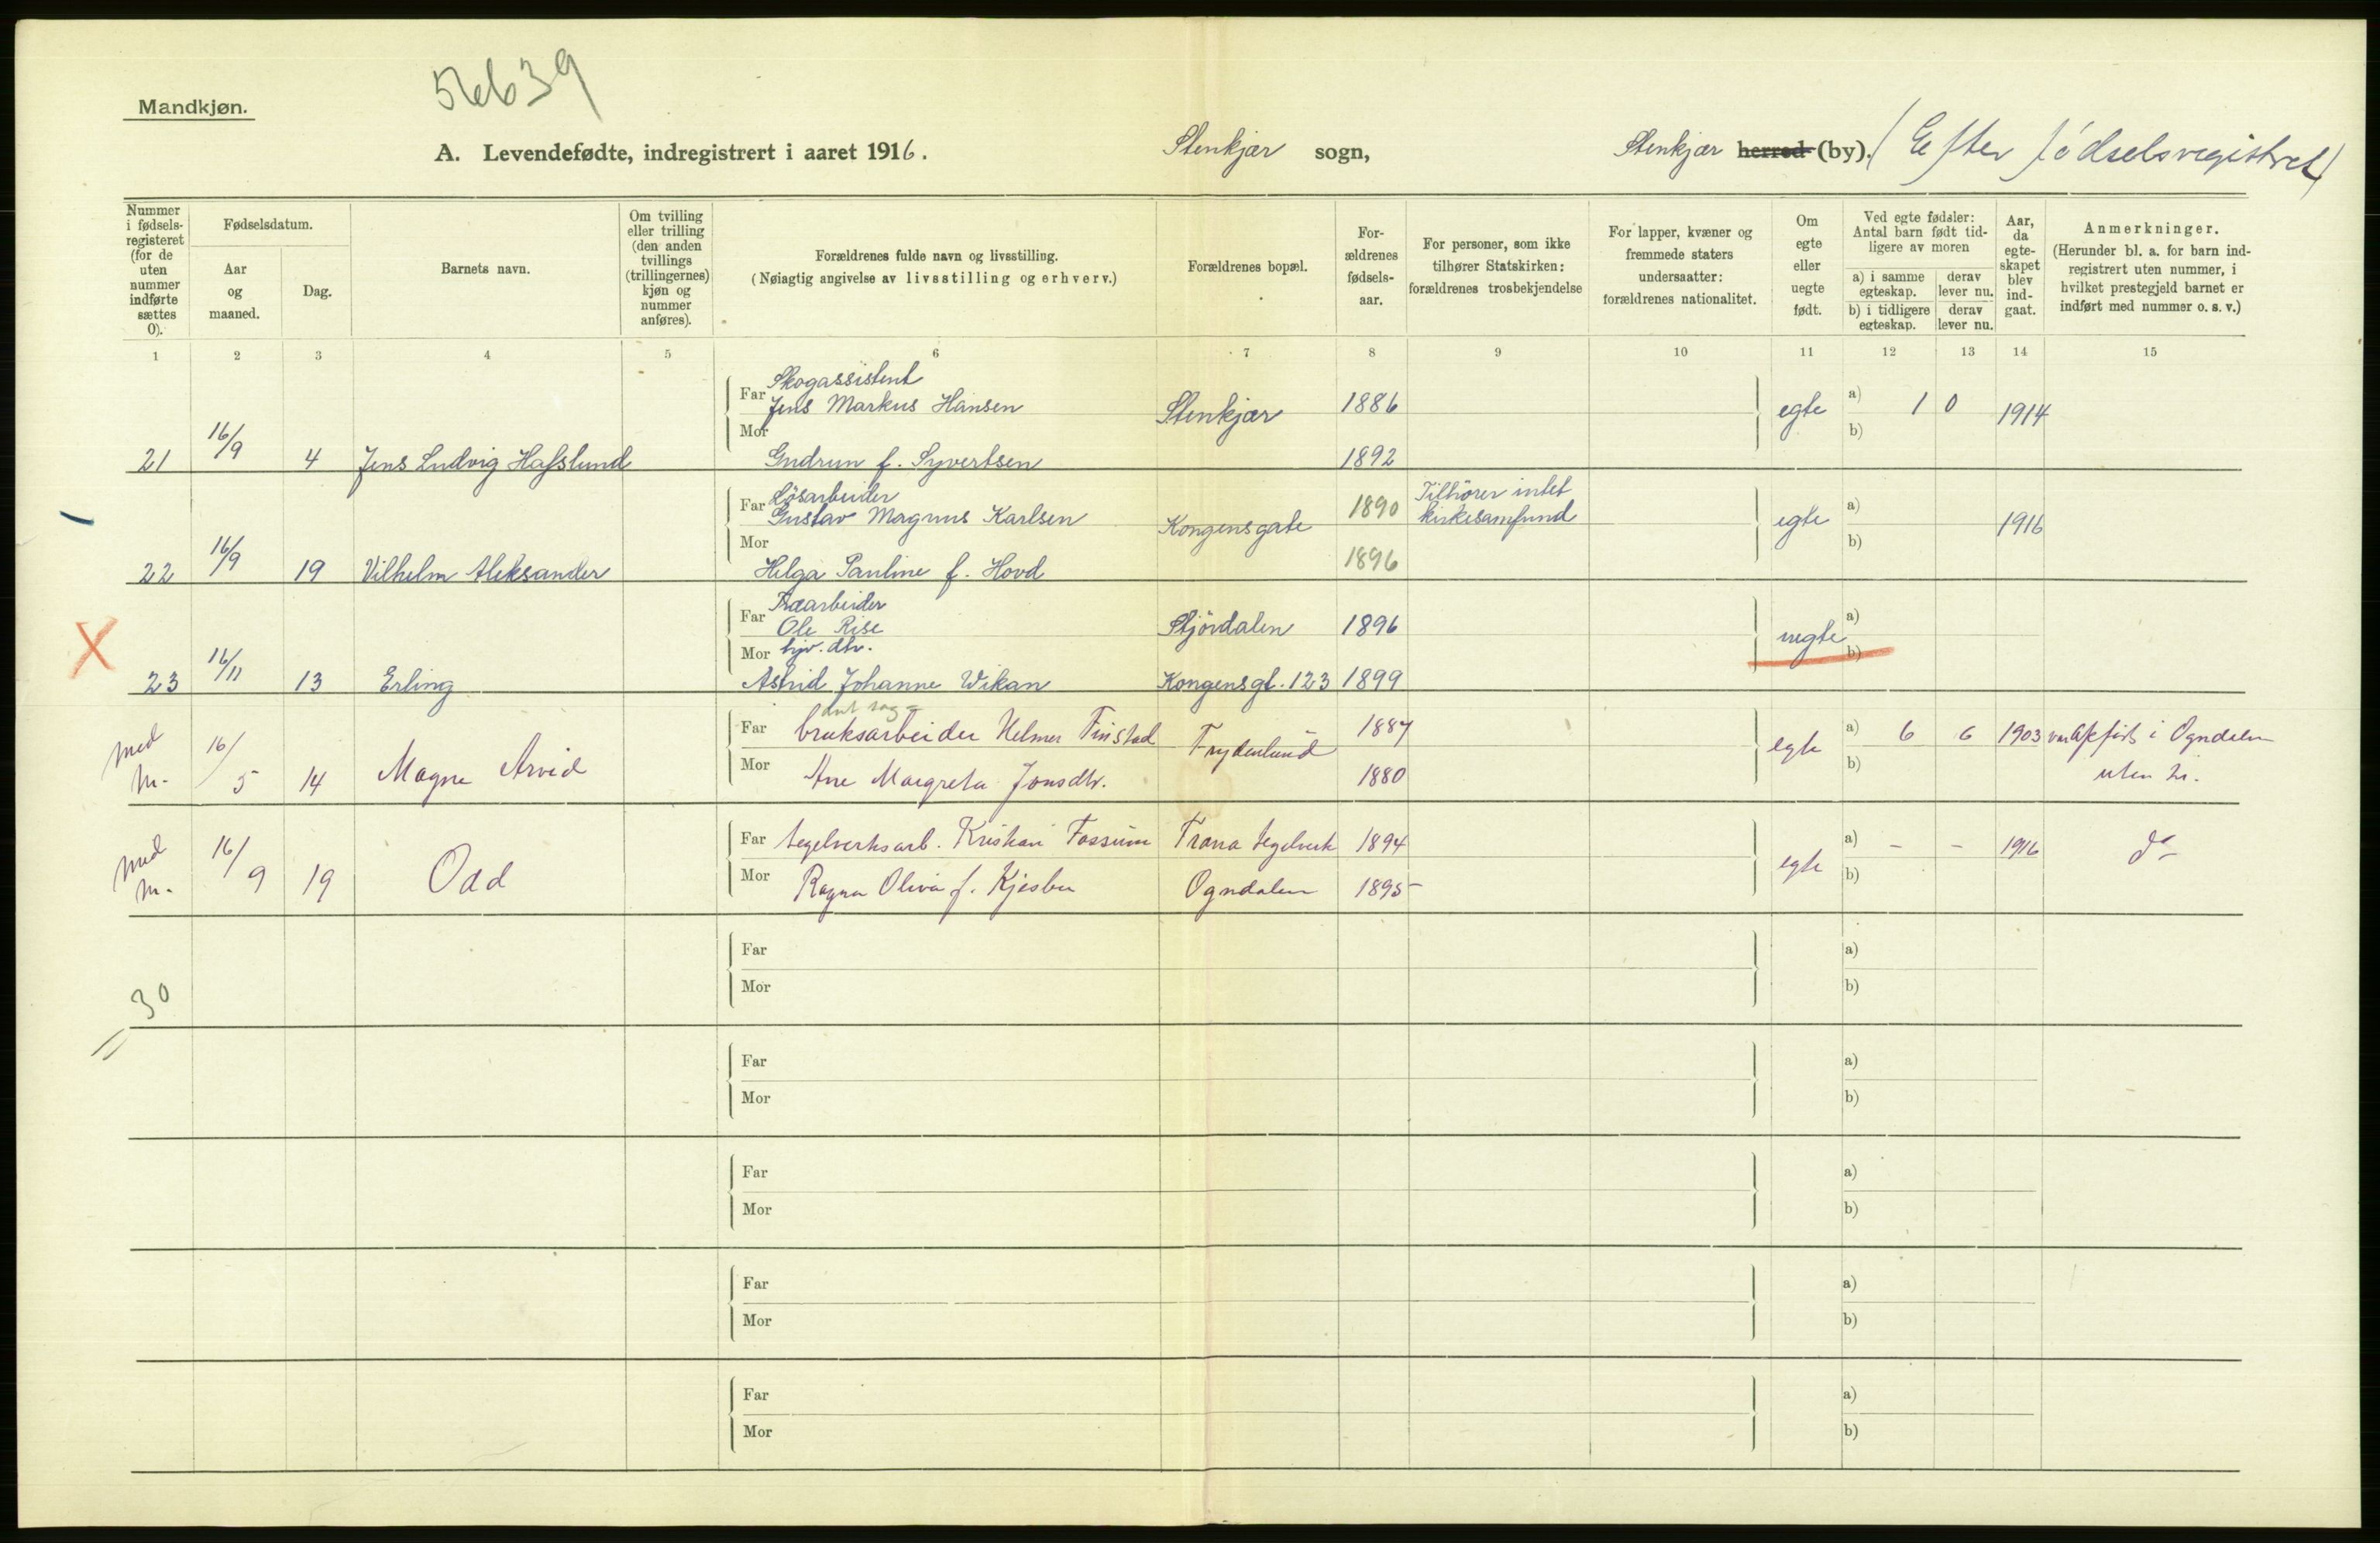 56639
Mandkjøn.
A. Levendefødte, indregistrert i aaret 1916. Stenkjær sogn, Stenkjær herred (by). (Efter fødselsregistret)
Nummer i fødsels-registeret (for de uten nummer indførte sættes 0).
Fødselsdatum.
Aar og maaned.
Dag.
Barnets navn.
Om tvilling eller trilling (den anden tvillings (trillingernes) kjøn og nummer anføres).
Forældrenes fulde navn og livsstilling.
(Nøiagtig angivelse av livsstilling og erhverv.)
Forældrenes bopæl.
For-ældrenes fødsels-aar.
For personer, som ikke tilhører Statskirken: forældrenes trosbekjendelse
For lapper, kvæner og fremmede staters undersaatter: forældrenes nationalitet.
Om egte eller uegte født.
Ved egte fødsler: Antal barn født tid-ligere av moren
a) i samme egteskap. derav lever nu.
b) i tidligere egteskap. derav lever nu.
Aar, da egte-skapet blev ind-gaat.
Anmerkninger.
(Herunder bl. a. for barn ind-registrert uten nummer, i hvilket prestegjeld barnet er indført med nummer o. s. v.)
1 2 3 4 5 6 7 8 9 10 11 12 13 14 15
Skogassistent
Far Jens Markus Hansen Stenkjær 1886 egte a) 1 0 1914
Mor b)
21 16/9 4 Jens Ludvig Hafslund Gudrun f. Syvertsen 1892
Løsarbeider Tilhører intet
Far Gustav Magnus Karlsen Kongensgate 1890 kirkesamfund egte a) 1916
Mor b)
22 16/9 19 Vilhelm Aleksander Helga Pauline f. Hovd 1896
Træarbeider
Far Ole Rise Stjördalen 1896 uegte a)
Mor tjv. dtr. b)
X 23 16/11 13 Erling Astrid Johanne Wikan Kongensgt. 123 1899
Far bruksarbeider Helmer Finstad Frydenlund 1887 egte a) 6 6 1903 i Ogndalen
med M. 16/5 14 Magne Arvid Mor Ane Margreta Jonsdtr. 1880 b) uten nr.
Far tegelverksarb. Kristian Fossum Trana tegelverk 1894 egte a) - - 1916 do
med M. 16/9 19 Odd Mor Ragna Oliva f. Kjesbu Ogndalen 1895 b)
Far a)
30 Mor b)
Far a)
Mor b)
Far a)
Mor b)
Far a)
Mor b)
Far a)
Mor b)